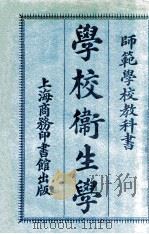 師範學校教科書
學校衞生學
上海商務印書館出版